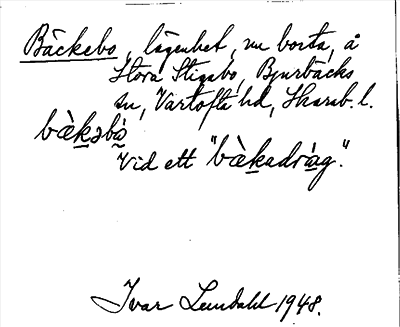 Bäckebo, lägenhet, nu borta, å
Stora Stigabo, Bjurbäcks
sn, Vartofta hd, Skarab. l.
bàkəbò
Vid ett "bàkadràg".
Ivar Lundahl 1948.